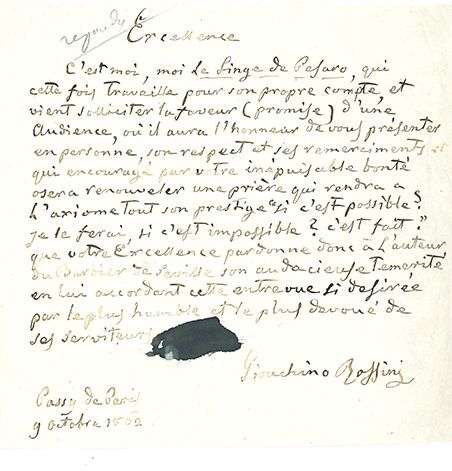 Excellence
C'est moi, moi Le Singe de Pesaro, qui
cette fois travaille pour son propre compte, et
vient solliciter la faveur (promise) d'une
Audience, où il aura l'honneur de vous présenter
en personne, son respect et ses remerciments et
qui encouragé par votre inépuisable bonté
osera renouveler une prière qui rendra a
L'axiome tout son prestige "si c'est possible?
Je le ferai, si c'est impossible? c'est fait."
que votre Excellence pardonne donc à L'auteur
du Barbier de Seville son audacieuse temerité
en lui accordant cette entrevue si desirée
par le plus humble et le plus devoué de
ses serviteurs
Giouchino Rossini
Passy de Paris
9 Octobre 1862